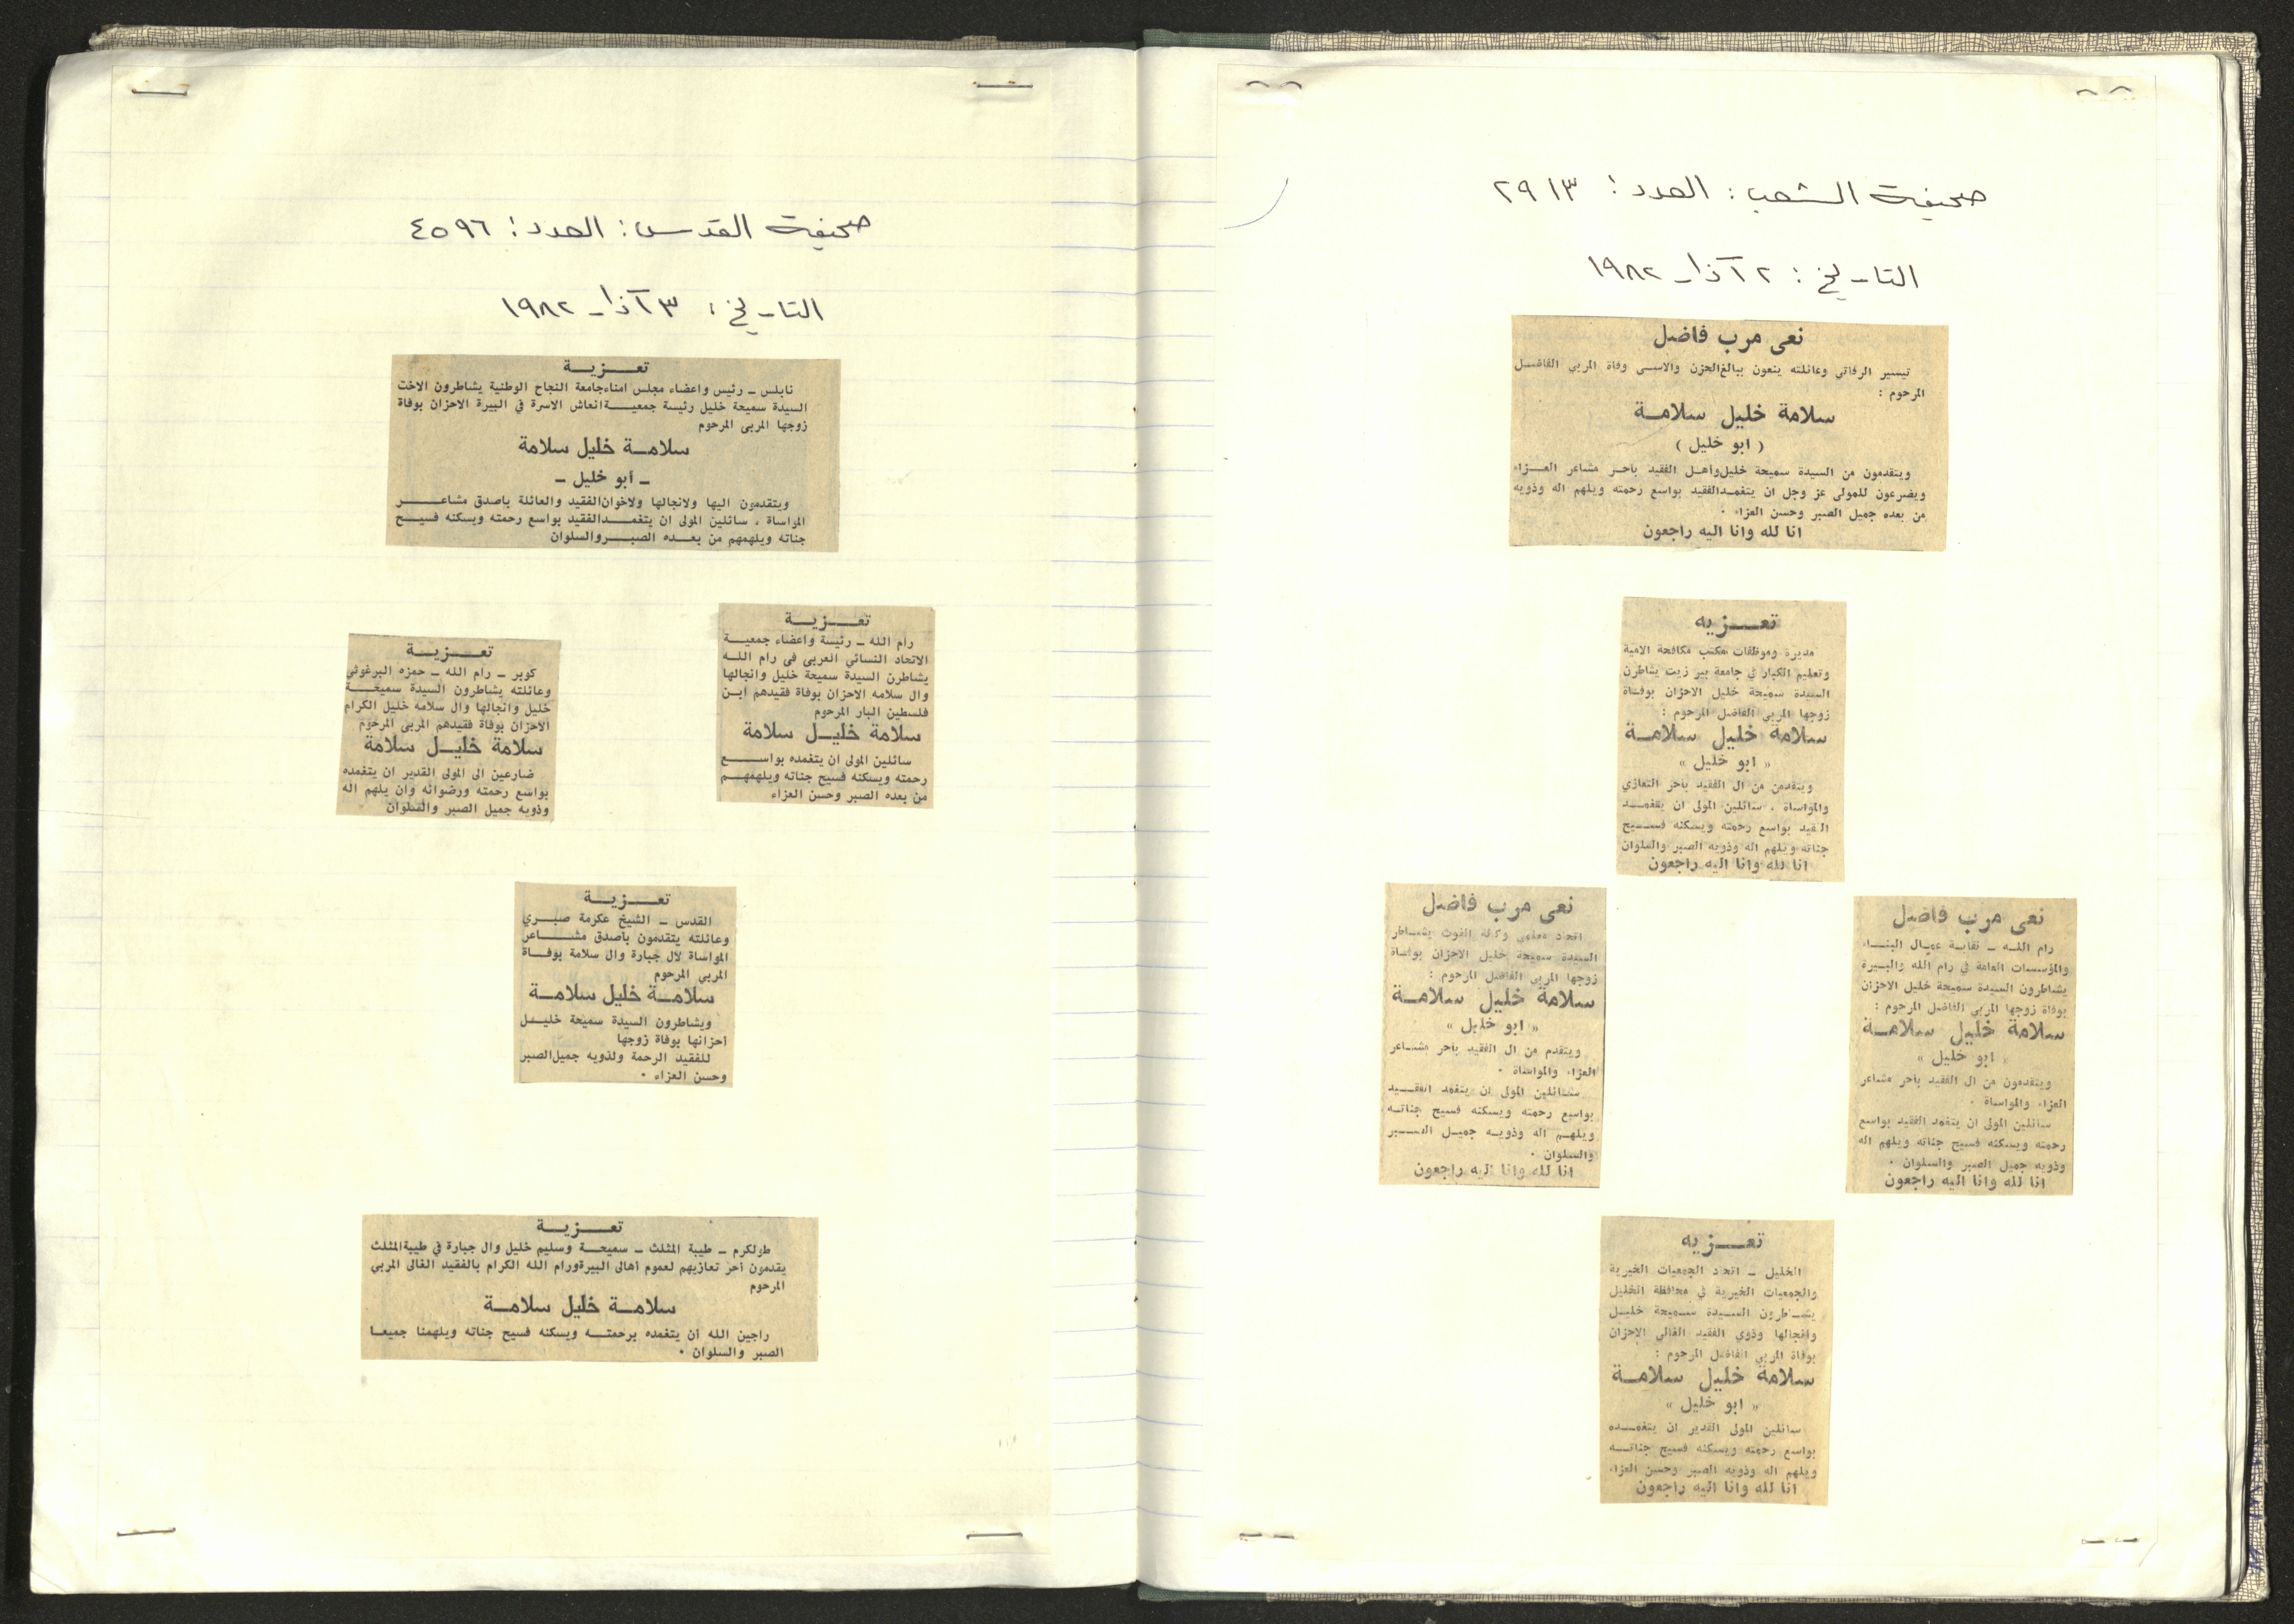 صحيفة الشعب : العدد : ٢٩١٣
التاريخ : ٢ آذار ١٩٨٢
نعى مرب فاضل
تيسير الرفاتي وعائلته ينعون ببالغ الحزن والاسى وفاة المربي الفاضل
المرحوم :
سلامة خليل سلامة
( ابو خليل )
ويتقدمون من السيدة سميحة خليل وأهل الفقيد بأحر مشاعر العزاء
ويضرعون للمولى عز وجل ان يتغمد الفقيد بواسع رحمته ويلهم اله وذويه
من بعده جميل الصبر وحسن العزاء .
انا لله وانا اليه راجعون
تعزيه
مديرة وموظفات مكتب مكافحة الامية
وتعليم الكبار في جامعة بير زيت يشاطرن
السيدة سميحة خليل الاحزان بوفاة
زوجها المربي الفاضل المرحوم :
سلامة خليل سلامة
« ابو خليل »
ويتقدمن من ال الفقيد بأحر التعازي
والمواساة ، سائلين المولى ان يتغمد
الفقيد بواسع رحمته ويسكنه فسيح
جناته ويلهم اله وذويه الصبر والسلوان
انا لله وانا اليه راجعون
نعى مرب فاضل
رام الله – نقابة عمال البناء
والمؤسسات العامة في رام الله والبيرة
يشاطرون السيدة سميحة خليل الاحزان
بوفاة زوجها المربي الفاضل المرحوم :
سلامة خليل سلامة
« ابو خليل »
ويتقدمون من ال الفقيد بأحر مشاعر
العزاء والمواساة .
سائلين المولى ان يتغمد الفقيد بواسع
رحمته ويسكنه فسيح جناته ويلهم اله
وذويه جميل الصبر والسلوان .
انا لله وانا اليه راجعون
نعى مرب فاضل
اتحاد معلمي وكالة الغوث يشاطر
السيدة سميحة خليل الاحزان بوفاة
زوجها المربي الفاضل المرحوم :
سلامة خليل سلامة
« ابو خليل »
ويتقدم من ال الفقيد بأحر مشاعر
العزاء والمواساة .
سائلين المولى ان يتغمد الفقيد
بواسع رحمته ويسكنه فسيح جناته
ويلهم اله وذويه جميل الصبر
والسلوان .
انا لله وانا اليه راجعون
تعزيه
الخليل – اتحاد الجمعيات الخيرية
والجمعيات الخيرية في محافظة الخليل
يشاطرون السيدة سميحة خليل
وانجالها وذوي الفقيد الغالي الاحزان
بوفاة المربي الفاضل المرحوم :
سلامة خليل سلامة
« ابو خليل »
سائلين المولى القدير ان يتغمده
بواسع رحمته ويسكنه فسيح جناته
ويلهم اله وذويه الصبر وحسن العزاء
انا لله وانا اليه راجعون
صحيفة القدس : العدد : ٤٥٩٦
التاريخ : ٣ آذار ١٩٨٢
تعزية
نابلس – رئيس واعضاء مجلس امناء جامعة النجاح الوطنية يشاطرون الاخت
السيدة سميحة خليل رئيسة جمعية انعاش الاسرة في البيرة الاحزان بوفاة
زوجها المربى المرحوم
سلامة خليل سلامة
– أبو خليل –
ويتقدمون اليها ولانجالها ولاخوان الفقيد والعائلة باصدق مشاعر
المواساة ، سائلين المولى ان يتغمد الفقيد بواسع رحمته ويسكنه فسيح
جناته ويلهمهم من بعده الصبر والسلوان
تعزية
رام الله – رئيسة واعضاء جمعية
الاتحاد النسائي العربي في رام الله
يشاطرن السيدة سميحة خليل وانجالها
وال سلامه الاحزان بوفاة فقيدهم ابن
فلسطين البار المرحوم
سلامة خليل سلامة
سائلين المولى ان يتغمده بواسع
رحمته ويسكنه فسيح جناته ويلهمهم
من بعده الصبر وحسن العزاء
تعزية
كوبر – رام الله – حمزه البرغوثي
وعائلته يشاطرون السيدة سميحة
خليل وانجالها وال سلامه خليل الكرام
الاحزان بوفاة فقيدهم المربي المرحوم
سلامة خليل سلامة
ضارعين الى المولى القدير ان يتغمده
بواسع رحمته ورضوانه وان يلهم اله
وذويه جميل الصبر والسلوان
تعزية
القدس – الشيخ عكرمة صبري
وعائلته يتقدمون بأصدق مشاعر
المواساة لآل جبارة وال سلامة بوفاة
المربي المرحوم
سلامة خليل سلامة
ويشاطرون السيدة سميحة خليل
احزانها بوفاة زوجها
للفقيد الرحمة ولذويه جميل الصبر
وحسن العزاء .
تعزية
طولكرم – طيبة المثلث – سميحة وسليم خليل وال جبارة في طيبة المثلث
يقدمون أحر تعازيهم لعموم أهالى البيرة ورام الله الكرام بالفقيد الغالى المربي
المرحوم
سلامة خليل سلامة
راجين الله أن يتغمده برحمته ويسكنه فسيح جناته ويلهمنا جميعا
الصبر والسلوان .